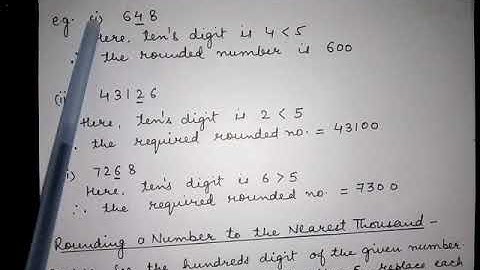 eg. (i) 648
Here, ten's digit is 4 < 5
∴ the rounded number is 600
(ii) 43126
Here, ten's digit is 2 < 5
∴ the required rounded no. = 43100
7268
Here, ten's digit is 6 > 5
∴ the required rounded no. = 7300
Rounding a Number to the Nearest Thousand -
the hundreds digit of the given number.
5, replace each